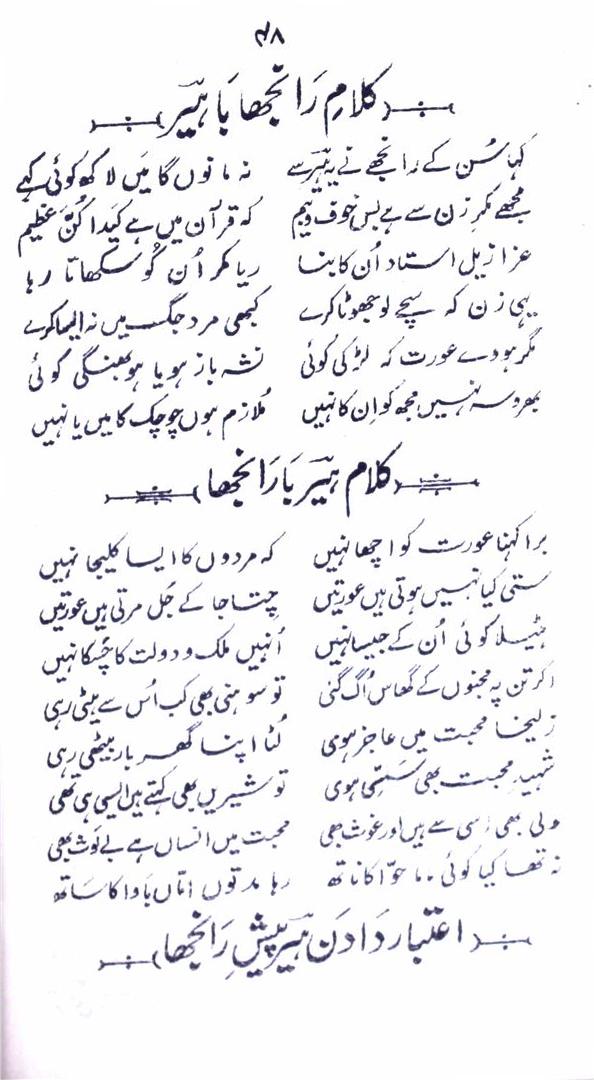 ۶۸
کلامِ رانجھا با ہیر
کہا سُن کے رانجھے نے یہ ہیر سے نہ مانوں گا میں لاکھ کوئی کہے
مجھے مکرِ زن سے ہے بس خوف و بیم کہ قرآن میں ہے کَیدَاکُنَّ عظیم
عزازیل استاد اُن کا بنا ریا مکر اُن کو سکھاتا رہا
یہی زن کہ سچے کو جھوٹا کرے کبھی مرد جگ میں نہ ایسا کرے
مگر ہووے عورت کہ لڑکی کوئی نشہ باز ہو یا ہو بھنگی کوئی
بھروسہ نہیں مجھ کو اِن کا نہیں مُلازم ہوں چوچک کا میں یا نہیں
کلام ہیر با رانجھا
برا کہنا عورت کو اچھا نہیں کہ مردوں کا ایسا کلیجا نہیں
ستی کیا نہیں ہوتی ہیں عورتیں چِتا جا کے جل مرتی ہیں عورتیں
ہٹیلا کوئی اُن کے جیسا نہیں اُنہیں ملک و دولت کا چسکا نہیں
اگر تن پہ مجنوں کے گھاس اُگ گئی تو سوہنی بھی کب اُس سے ہیٹی رہی
زلیخا محبت میں عاجز ہوی لُٹا اپنا گھر بار بیٹھی رہی
شہیدِ محبت بھی سَسّی ہوی تو شیریں بھی کہتے ہیں ایسی ہی تھی
ولی بھی اسی سے ہیں اور غوث بھی محبت میں انساں ہے بے لَوث بھی
نہ تھا کیا کوئی ماما حوّا کا ناتھ رہا مدتوں امّاں باوا کا ساتھ
اعتبار دادن ہیر پیشِ رانجھا